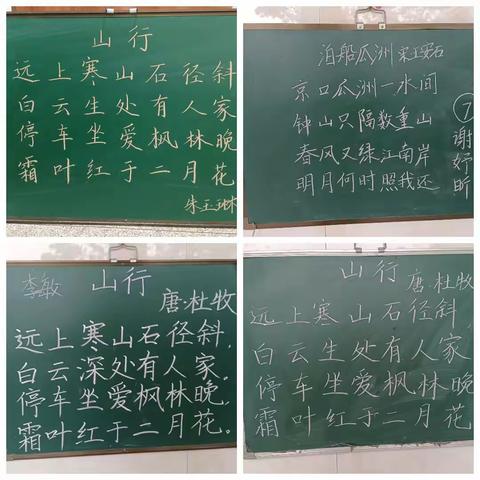 山行
远上寒山石径斜
白云生处有人家
停车坐爱枫林晚
霜叶红于二月花
朱玉琳
泊船瓜洲 宋王安石
京口瓜洲一水间
钟山只隔数重山
春风又绿江南岸
明月何时照我还
⑦谢妤昕
李敏
山行
唐·杜牧
远上寒山石径斜，
白云深处有人家，
停车坐爱枫林晚，
霜叶红于二月花。
山行
唐·杜牧
远上寒山石径斜，
白云生处有人家
停车坐爱枫林晚
霜叶红于二月花